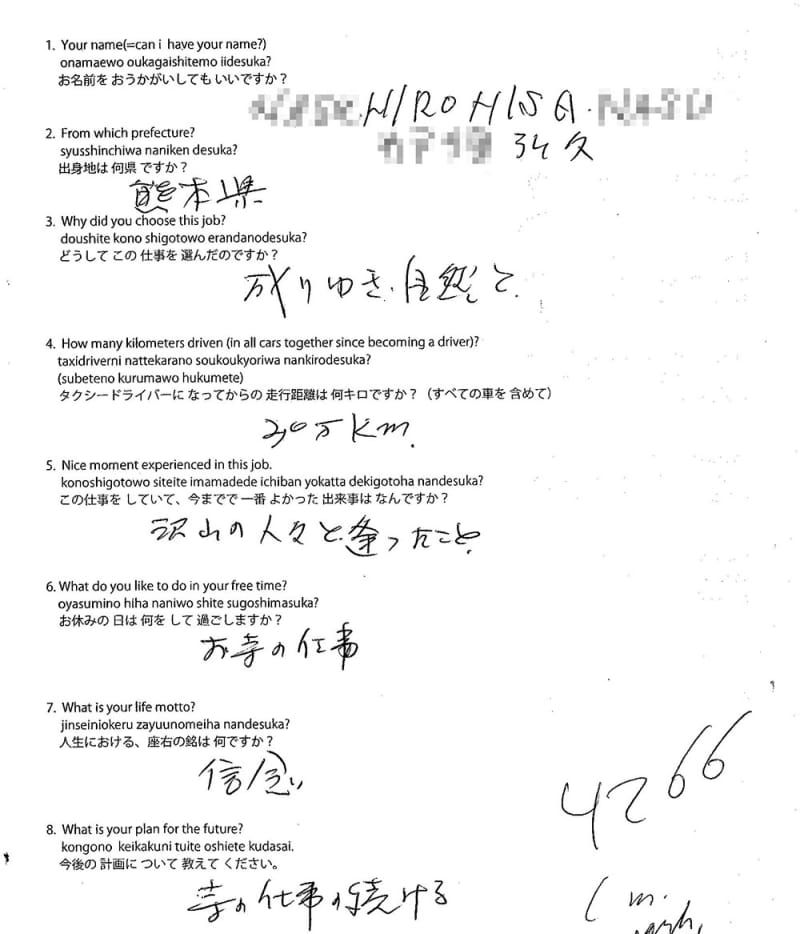 1. Your name(=can i have your name?)
onamaewo oukagaishitemo iidesuka?
お名前を おうかがいしても いいですか？
HIROHISA.
2. From which prefecture?
syusshinchiwa naniken desuka?
出身地は 何県 ですか？
熊本県
3. Why did you choose this job?
doushite kono shigotowo erandanodesuka?
どうして この 仕事を 選んだのですか？
成りゆき、自然と.
4. How many kilometers driven (in all cars together since becoming a driver)?
taxidriverni nattekarano soukoukyoriwa nankirodesuka?
(subeteno kurumawo hukumete)
タクシードライバーに なってからの 走行距離は 何キロですか？（すべての車を 含めて）
30万km.
5. Nice moment experienced in this job.
konoshigotowo siteite imamadede ichiban yokatta dekigotoha nandesuka?
この仕事を していて、今までで 一番 よかった 出来事は なんですか？
沢山の人々と逢ったこと.
6. What do you like to do in your free time?
oyasumino hiha naniwo shite sugoshimasuka?
お休みの 日は 何を して 過ごしますか？
お寺の仕事
7. What is your life motto?
jinseiniokeru zayuunomeiha nandesuka?
人生における、座右の銘は 何ですか？
信念
4266
8. What is your plan for the future?
kongono keikakuni tuite oshiete kudasai.
今後の 計画に ついて 教えて ください。
寺の仕事の続ける